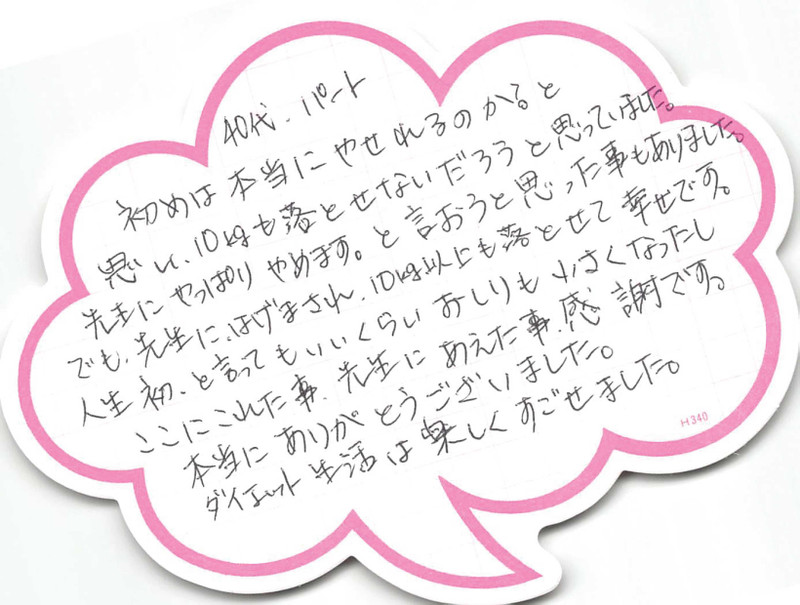 40代.パート
初めは本当にやせれるのかると
思い、10kgも落とせないだろうと思っていました。
先生にやっぱりやめます。と言おうと思った事もありました。
でも、先生に、はげまされ、10kg以上にも落とせて幸せです。
人生初、と言ってもいいくらいおしりも小さくなったし
ここにこれた事、先生にあえた事、感謝です。
本当にありがとうございました。
ダイエット生活は楽しくすごせました。
H340